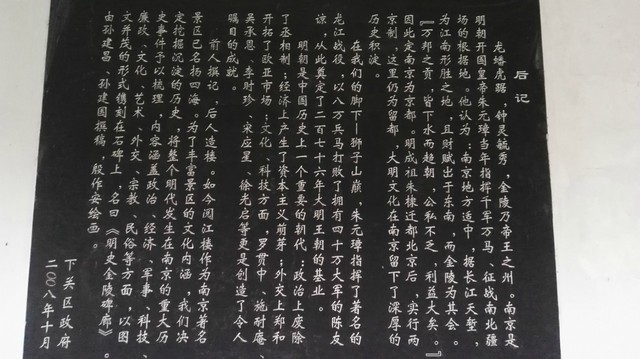 后记
龙蟠虎踞，钟灵毓秀，金陵乃帝王之州。南京是
明朝开国皇帝朱元璋当年指挥千军万马、征战南北疆
场的根据地。他认为：南京地方适中，据长江天堑，
为江南形胜之地，且财赋出于东南，而金陵为其会。
『万邦之贡，皆下水而趋朝，公私不乏，利益大矣。』
因此定南京为京都。明成祖朱棣迁都北京后，实行两
京制，这里仍为留都，大明文化在南京留下了深厚的
历史积淀。
在我们的脚下—狮子山巅，朱元璋指挥了著名的
龙江战役，以八万兵马打败了拥有四十万大军的陈友
谅，从此奠定了二百七十六年大明王朝的基业。
明朝是中国历史上一个重要的朝代：政治上废除
了丞相制；经济上产生了资本主义萌芽；外交上郑和
开拓了欧亚市场；文化、科技方面，罗贯中、施耐庵、
吴承恩、李时珍、宋应星、徐光启等更是创造了令人
瞩目的成就。
前人撰记，后人造楼。如今阅江楼作为南京著名
景区已名扬四海。为了丰富景区的文化内涵，我们决
定挖掘沉淀的历史，将整个明代发生在南京的重大历
史事件予以梳理，内容涵盖政治、经济、军事、科技、
廉政、文化、艺术、外交、宗教、民俗等方面，以图
文并茂的形式镌刻在石碑上，名曰《明史金陵碑廊》。
由孙建昌、孙建国撰稿，殷作安绘画。
下关区政府
二〇〇八年十月